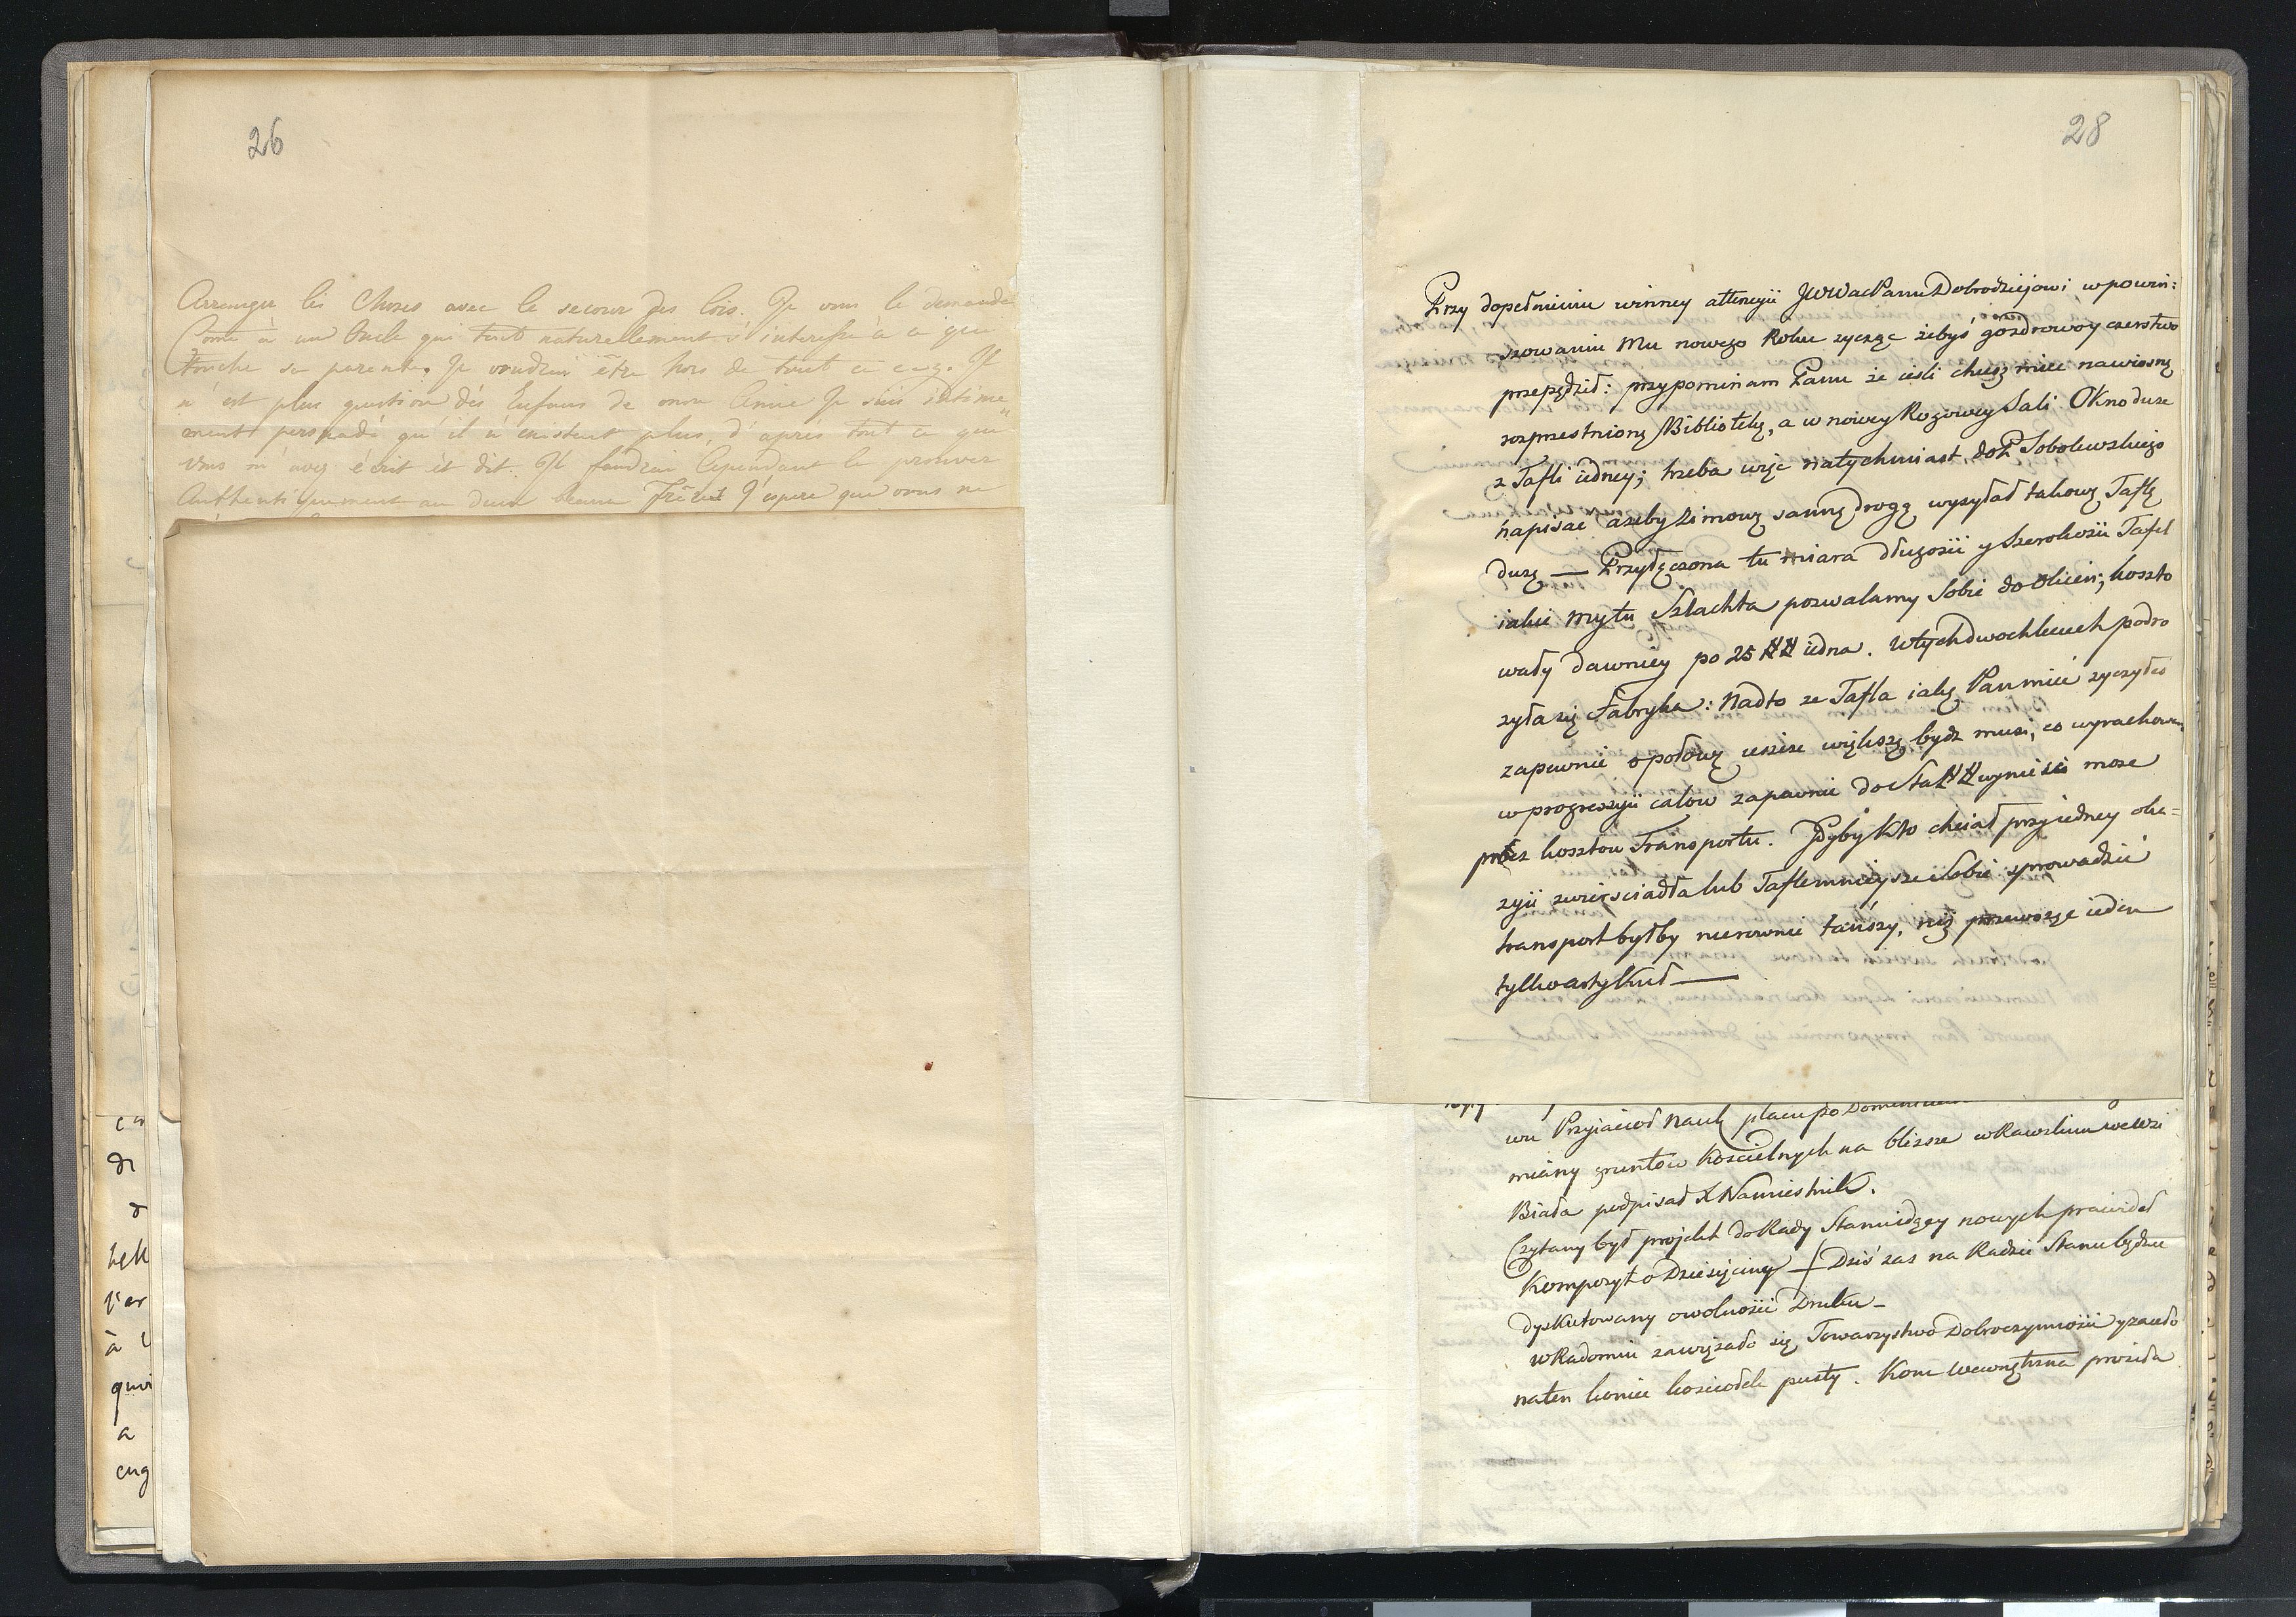 26
Arranger les Choses avec le secour des lois. Je vous le demande
Comme à un Oncle qui tout naturellement s'interesse à ce qui
touche sa parente. Je voudrai être hors de tout ce
n'est plus question des Enfans de mon Amie Je suis intime
ment persuadé qu'il n'existent plus, d'après tout ce que
vous m'avez écrit et dit. Il faudrai Cependant le prouver
Authentiquement au deux beaux Frères J'espere que vous ne
28
Przy dopełnieniu winney attencyii JWWacPanu Dobrodziejowi, w powin:
szowaniu Mu nowego Roku zycząc żebyś go zdrowo y czerstwo
przepędził: przypominam Panu że ieśli chcesz miec na wiosnę
rozprzestrnioną Bibliotekę, a w nowey Rogowey Sali Okno duze
z Tafli iedney; trzeba więc natychmiast do P Sobolewskiego
napisac azeby zimową sanną drogą wysyłał takową Taflę
duzą — Przyłączona tu miara długosii y szerokosii Tafel
iakie my tu Szlachta pozwalamy Sobie do Okien; koszto
wały dawniey po 25 ## iedna. W tych dwoch leciech podro
zyła się Fabryka: Nadto ze Tafla iaką Pan mieć zyczyłes
zapewnie o połowę ieszcze większą bydz musi, co wyrachowan
w progressyii calow zapewnie do Sta ## wyniesie moze
prócz kosztow Transportu. Gdyby Kto chciał przy iedney oka=
zyii zwierciadła lub Tafle mnieysze Sobie sprowadzić
transport byłby nierownie tańszy, niż przewożąc ieden
tylko artykuł —
wu Przyiacioł Nauk placu po
miany gruntow Koscielnych na blizsze w Rawskim we Wsi
Biała podpisał X Namiestnik.
Czytany był projekt do Rady Stanu idący nowych prawideł
Kompozyt o Dziesięciny — / Dziś zas na Radzie Stanu będzie
dyskutowany o wolnosii Druku —
w Radomiu zawiązało się Towarzystwo Dobroczynnosii y zaięło
na ten koniec kosciołek pusty. Kom Wewnętrzna prosiła